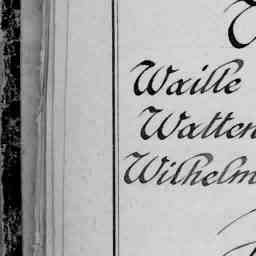 Waille
Watten
Wilhelm